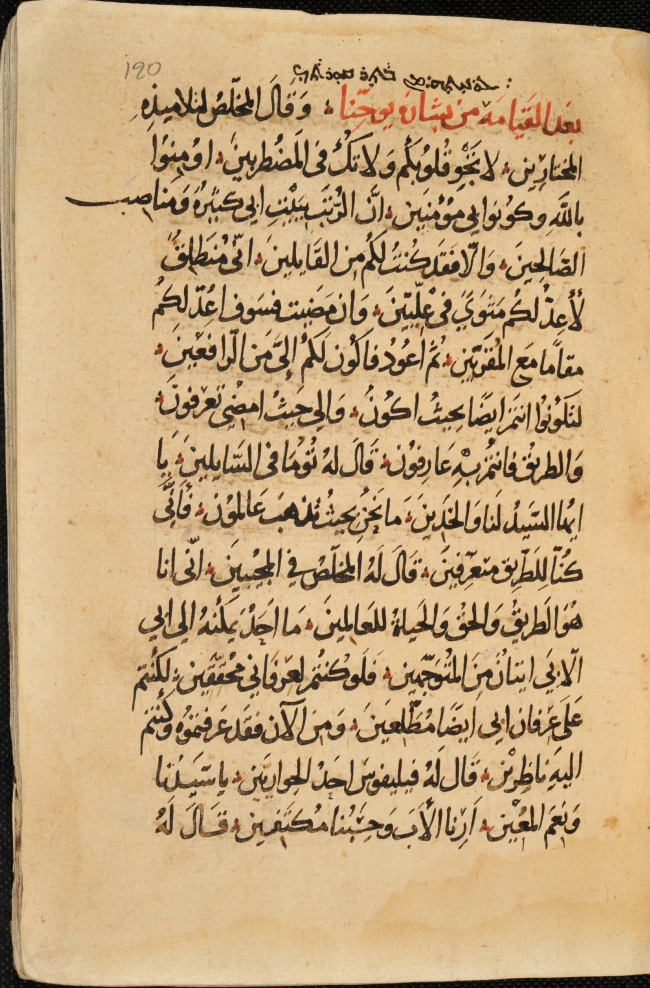 120
بعد القيامة من بشارة يوحنا ، وقال المخلص لتلاميذه
المختارين ، لا تجو قلوبكم ولا تك في المضطربين ، اومنوا
بالله وكونوا بي مؤمنين ، ان الرتب ببيت ابي كثيرة ومناصب
الصالحين ، والا فقد كنت لكم من القايلين ، اني منطلق
لأعد لكم مثوى في عليين ، وان مضيت فسوف اعد لكم
مقاما مع المقربين ، ثم اعود فاكون لكم إلى من الرافعين ،
لتكونوا انتم ايضا بحيث اكون ، والى حيث امضي تعرفون ،
والطريق فانتم به عارفون ، قال له توما في السايلين ، يا
ايها السيد لنا والخدين ، ما نحن بحيث تذهب عالمون ، فأنى
كنا للطريق متعرفين ، قال له المخلص في المجيبين ، انى انا
هو الطريق والحق والحياة للعالمين ، ما احد يمكنه الى ابي
الا بي اتيان من المتوجهين ، فلو كنتم لعرفاني محققين ، لكنتم
على عرفان ابي ايضا مطلعين ، ومن الآن فقد عرفتموه وكنتم
اليه ناظرين ، قال له فيليفوس احد الحواريين ، يا سيدنا
ونعم المعين ، ارنا الأب وحسبنا مكتفين ، قال له